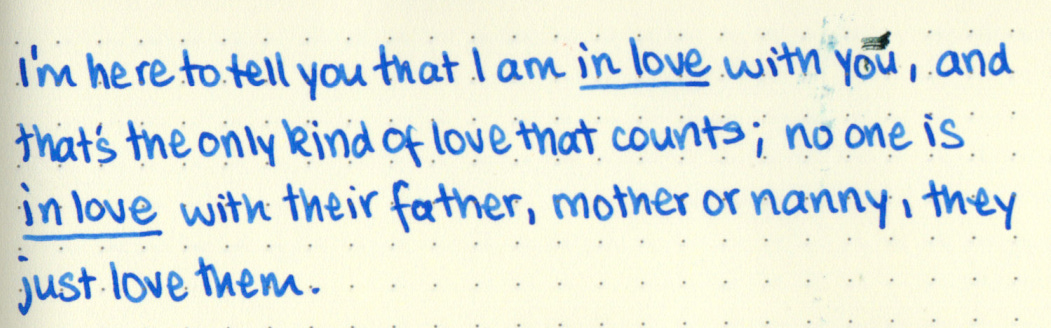 I'm here to tell you that I am in love with you, and
that's the only kind of love that counts; no one is
in love with their father, mother or nanny, they
just love them.